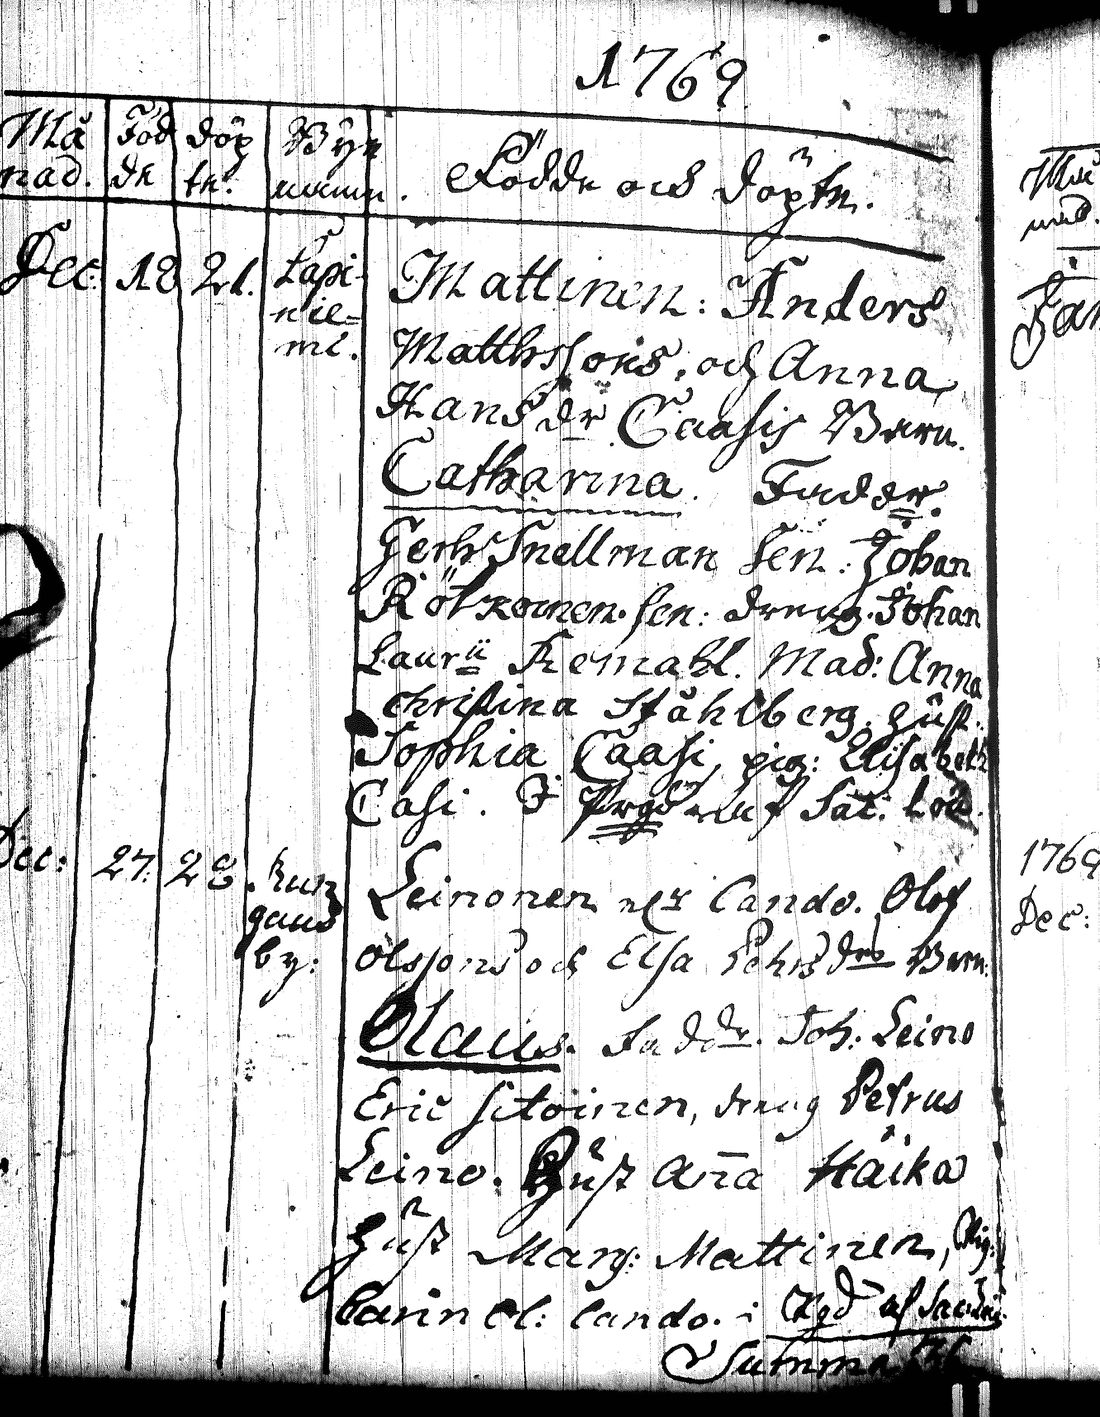 1769
Må
nad.
Föd
de
döp
te.
Byn
namn.
Födde och döpte.
Dec: 18 21. Lapi-
nie=
mi.
Mattinen: Anders
Matthssons, och Anna
Hans dr Caasis Barn.
Catharina. Faddr.
Gerh Snellman sen: Johan
Rötkönen sen: dreng. Johan
Laurii Remahl. Mad: Anna
Christina Ståhlberg. hust.
Sophia Caasi, pig: Elisabeth
Casi. af Sac:
Dec: 27. 28.
by:
Leinonen Cando. Olof
Olssons och Elsa Pehrs dr Barn
Olaus. Faddr. Joh: Leino
Eric Sitoinen, dreng Petrus
Leino. Hust Aña Häikä
Hust Marg: Mattinen, Pig:
Carin Cando. i af
Summa
Må
nad.
Jan
1769
Dec: